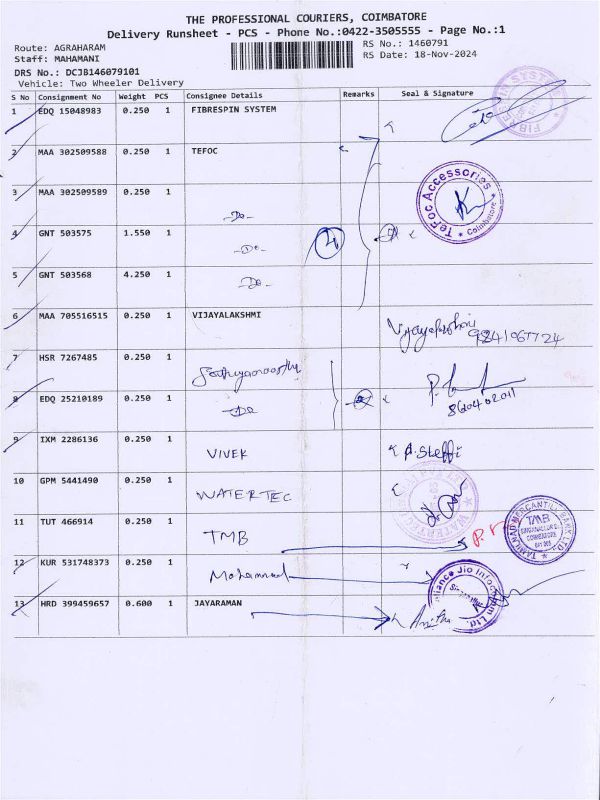 THE PROFESSIONAL COURIERS, COIMBATORE
Delivery Runsheet - PCS - Phone No.:0422-3505555 - Page No.:1
Route: AGRAHARAM
Staff: MAHAMANI
RS No.: 1460791
RS Date: 18-Nov-2024
DRS No.: DCJB146079101
Vehicle: Two Wheeler Delivery
S No Consignment No Weight PCS Consignee Details Remarks Seal & Signature
1 EDQ 15048983 0.250 1 FIBRESPIN SYSTEM
FIBRESPIN SYSTEM
2 MAA 302509588 0.250 1 TEFOC
3 MAA 302509589 0.250 1 -Do-
TeFoc Accessories * Coimbatore *
4 GNT 503575 1.550 1 -Do- 4
5 GNT 503568 4.250 1 -Do-
6 MAA 705516515 0.250 1 VIJAYALAKSHMI
9841067724
7 HSR 7267485 0.250 1
8 EDQ 25210189 0.250 1 -Do-
9 IXM 2286136 0.250 1 VIVEK A. Steffi
10 GPM 5441490 0.250 1 WATERTEC
11 TUT 466914 0.250 1 TMB
TAMILNAD MERCANTILE BANK LTD.
TMB
COIMBATORE
12 KUR 531748373 0.250 1 Mohammad
Reliance Jio Infocomm Ltd.
13 HRD 399459657 0.600 1 JAYARAMAN Anitha